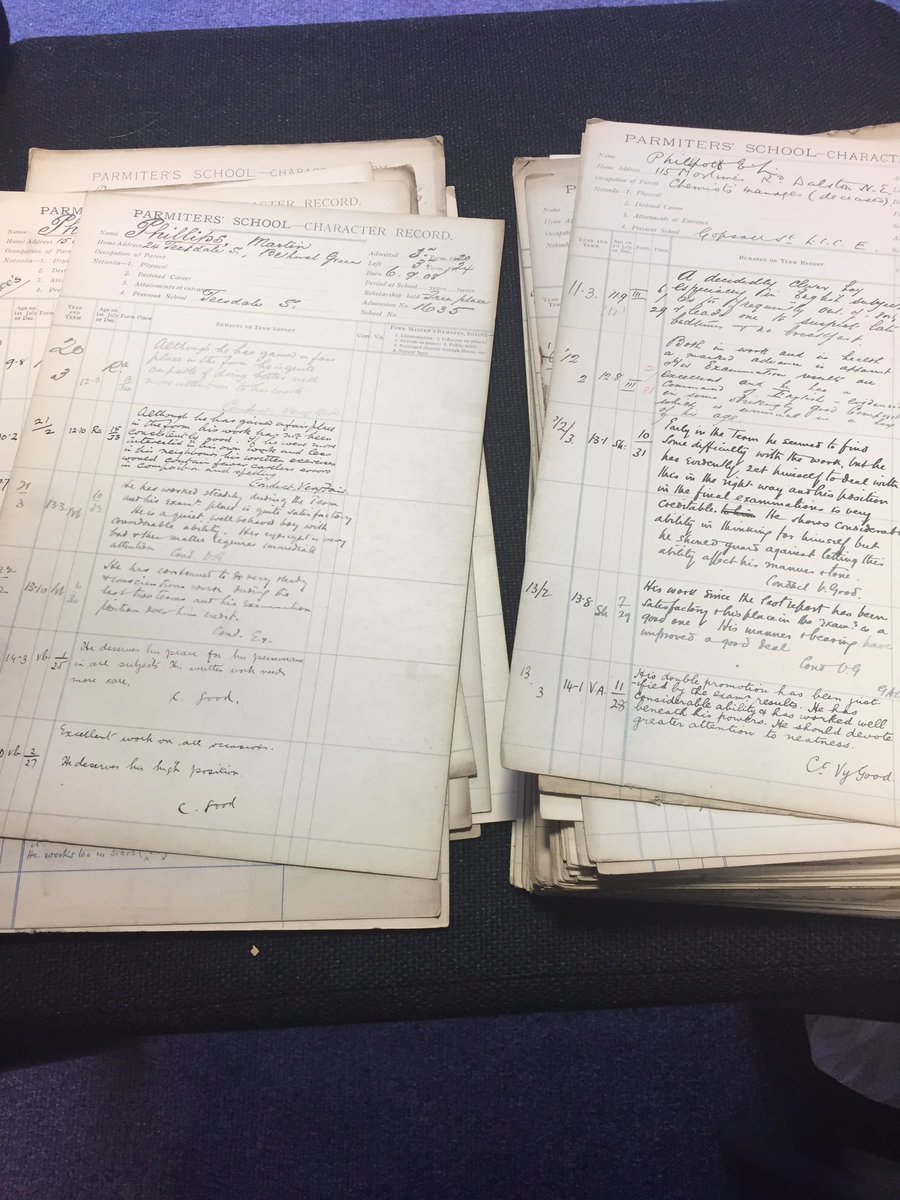 PARMITERS' SCHOOL—CHARACTER
CHARACTER RECORD.
PARMITERS' SCHOOL—CHARACTER RECORD.
Name Phillips Martin
Home Address 26 Teesdale St, Bethnal Green
Occupation of Parent
Notanda—1. Physical
2. Destined Career
3. Attachments at entrance
4. Previous School Teesdale St
Admitted 3rd Term, 1920
Left 3rd Term, 1924
Born 6. 9 08
Period at School years
Scholarship held Free place
Admission No. 1635
School No.
YEAR AND TERM
Age on 1st July or Dec.
Form
Place
REMARKS ON TERM REPORT
Com. Vio.
FORM MASTER'S REMARKS, NOTING
20
3
12-3
Although he has gained a fair
place in the form he is quite
capable of doing better with
more attention to his work
Conduct. Very Good
21/2
12.10 Ra 18/33
Although he has gained a fair place
in the form his work has not been
consistently good. If he were more
interested in his own work and less
in his neighbours his written exercises
would contain fewer careless errors
in Composn. and spelling
Conduct. Very Fair
21
3
13.3
He has worked steadily during the Term
and his examn. place is quite satisfactory
He is a quiet, well behaved boy with
considerable ability. His eyesight is very
bad & the matter requires immediate
attention Cond VG
13.10
He has continued to do very steady
& conscientious work during the
last two terms and his examination
position does him credit.
Cond. Ex.
14-3 Vb 1/25
He deserves his place for his perseverance
in all subjects. His written work needs
more care.
C. Good,
Vb 2/27
Excellent work on all occasions.
He deserves his high position.
C. Good
He works too in school
PARMITERS' SCHOOL—CHARACTER
Name Philpott E
Home Address 115 Mortimer Rd Dalston N.E.
Occupation of Parent Chemist's manager (deceased).
Notanda—1. Physical
2. Destined Career
3. Attachments at Entrance
4. Previous School Gopsall St L.C.C. E
YEAR AND TERM
Age on 1st July or Dec.
Form
Place
REMARKS ON TERM REPORT.
11.3.
11.9 III
12.1
6
29
A decidedly clever boy
especially in English subjects
is frequently out of
& leads one to suspect late
bedtimes & no breakfast
12
2
12.8 III
Both in work and in health
a marked advance is apparent
His Examination results are
excellent and he has a
command of English - evidenced
in some strikingly good Compos
which is unusual in a boy
of his age
12/3
13.1 Sh. 10/31
Early in the Term he seemed to find
some difficulty with the work, but he
has evidently set himself to deal with
this in the right way and his position
in the final examinations is very
creditable. He shows considerable
ability in thinking for himself but
he should guard against letting this
ability affect his manner & tone.
Conduct V. Good.
13/2
13.8 Sh 7/29
His work since the last report has been
satisfactory & his place in the examn. is a
good one & His manner & bearing have
improved a good deal
Cond V.G
13.
3
14-1 V.A. 11/23
His double promotion has been just
-ified by the examn. results. He has
considerable ability & has worked well
beneath his powers. He should devote
greater attention to neatness.
Ct. Vy Good.